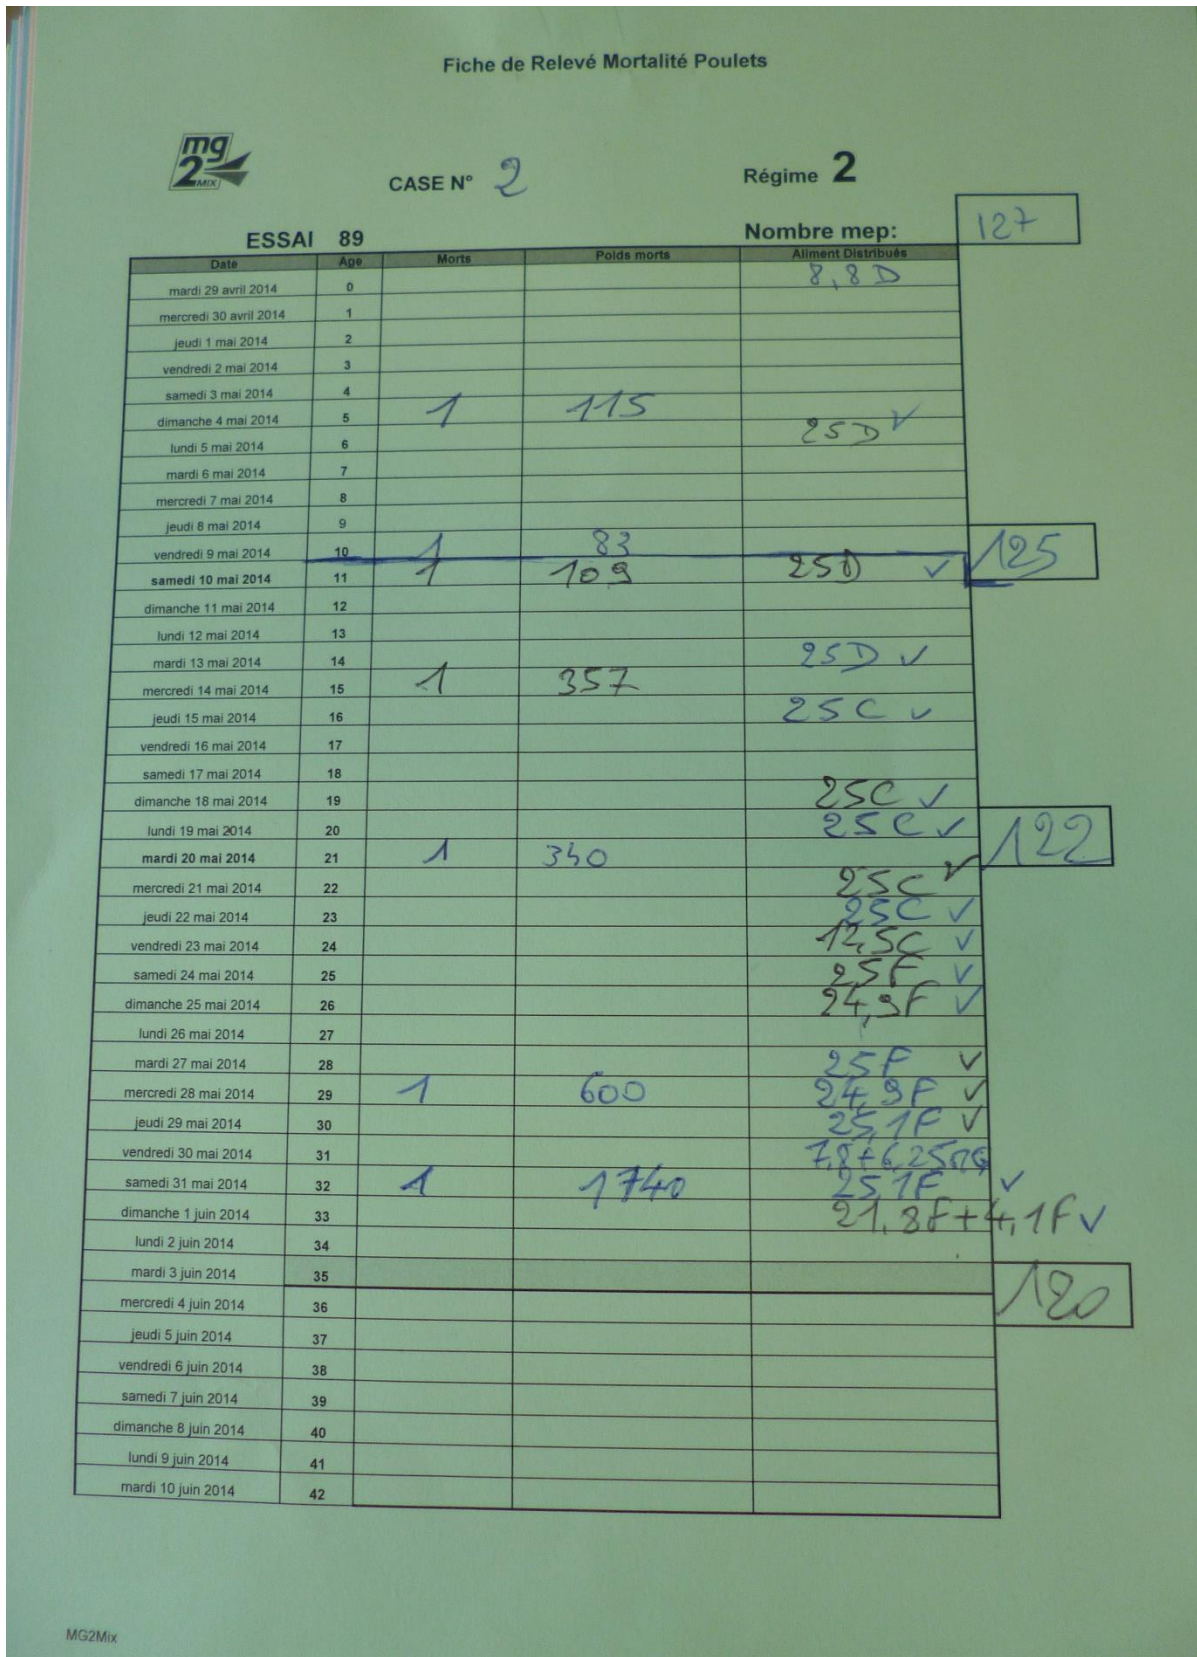 Fiche de Relevé Mortalité Poulets
mg
2MIX
CASE N° 2 Régime 2
ESSAI 89 Nombre mep: 127
Date Age Morts Poids morts Aliment Distribués
mardi 29 avril 2014 0 8,8D
mercredi 30 avril 2014 1
jeudi 1 mai 2014 2
vendredi 2 mai 2014 3
samedi 3 mai 2014 4
dimanche 4 mai 2014 5 1 115
lundi 5 mai 2014 6 25D ✓
mardi 6 mai 2014 7
mercredi 7 mai 2014 8
jeudi 8 mai 2014 9
vendredi 9 mai 2014 10 1 83 125
samedi 10 mai 2014 11 1 109 25D ✓
dimanche 11 mai 2014 12
lundi 12 mai 2014 13
mardi 13 mai 2014 14 25D ✓
mercredi 14 mai 2014 15 1 357
jeudi 15 mai 2014 16 25C ✓
vendredi 16 mai 2014 17
samedi 17 mai 2014 18
dimanche 18 mai 2014 19 25C ✓
lundi 19 mai 2014 20 25C ✓ 122
mardi 20 mai 2014 21 1 340
mercredi 21 mai 2014 22 25C ✓
jeudi 22 mai 2014 23 25C ✓
vendredi 23 mai 2014 24 12,5C ✓
samedi 24 mai 2014 25 25F ✓
dimanche 25 mai 2014 26 24,9F ✓
lundi 26 mai 2014 27
mardi 27 mai 2014 28 25F ✓
mercredi 28 mai 2014 29 1 600 24,9F ✓
jeudi 29 mai 2014 30 25,1F ✓
vendredi 30 mai 2014 31 7,8+6,25
samedi 31 mai 2014 32 1 1740 25,1F ✓
dimanche 1 juin 2014 33 21,8F+4,1F ✓
lundi 2 juin 2014 34
mardi 3 juin 2014 35 120
mercredi 4 juin 2014 36
jeudi 5 juin 2014 37
vendredi 6 juin 2014 38
samedi 7 juin 2014 39
dimanche 8 juin 2014 40
lundi 9 juin 2014 41
mardi 10 juin 2014 42
MG2Mix